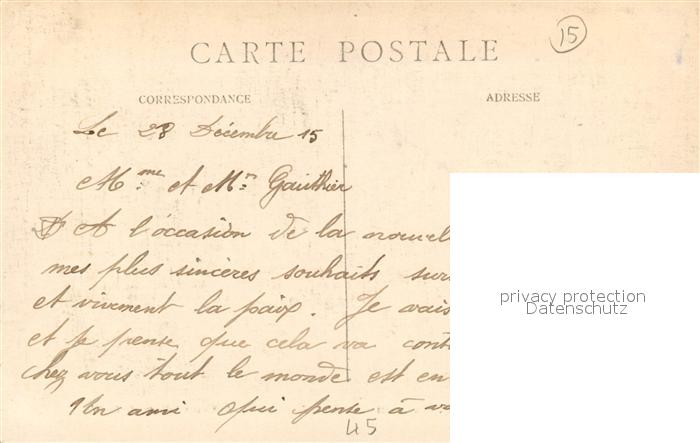 15
CARTE POSTALE
CORRESPONDANCE
ADRESSE
Le 28 Décembre 15
Mme et Mr Gauthier
A l'occasion de la nouvel
mes plus sincères souhaits sur
et vivement la paix. Je vais
et je pense que cela va cont
chez vous tout le monde est en
Un ami qui pense à vo
45
privacy protection
Datenschutz